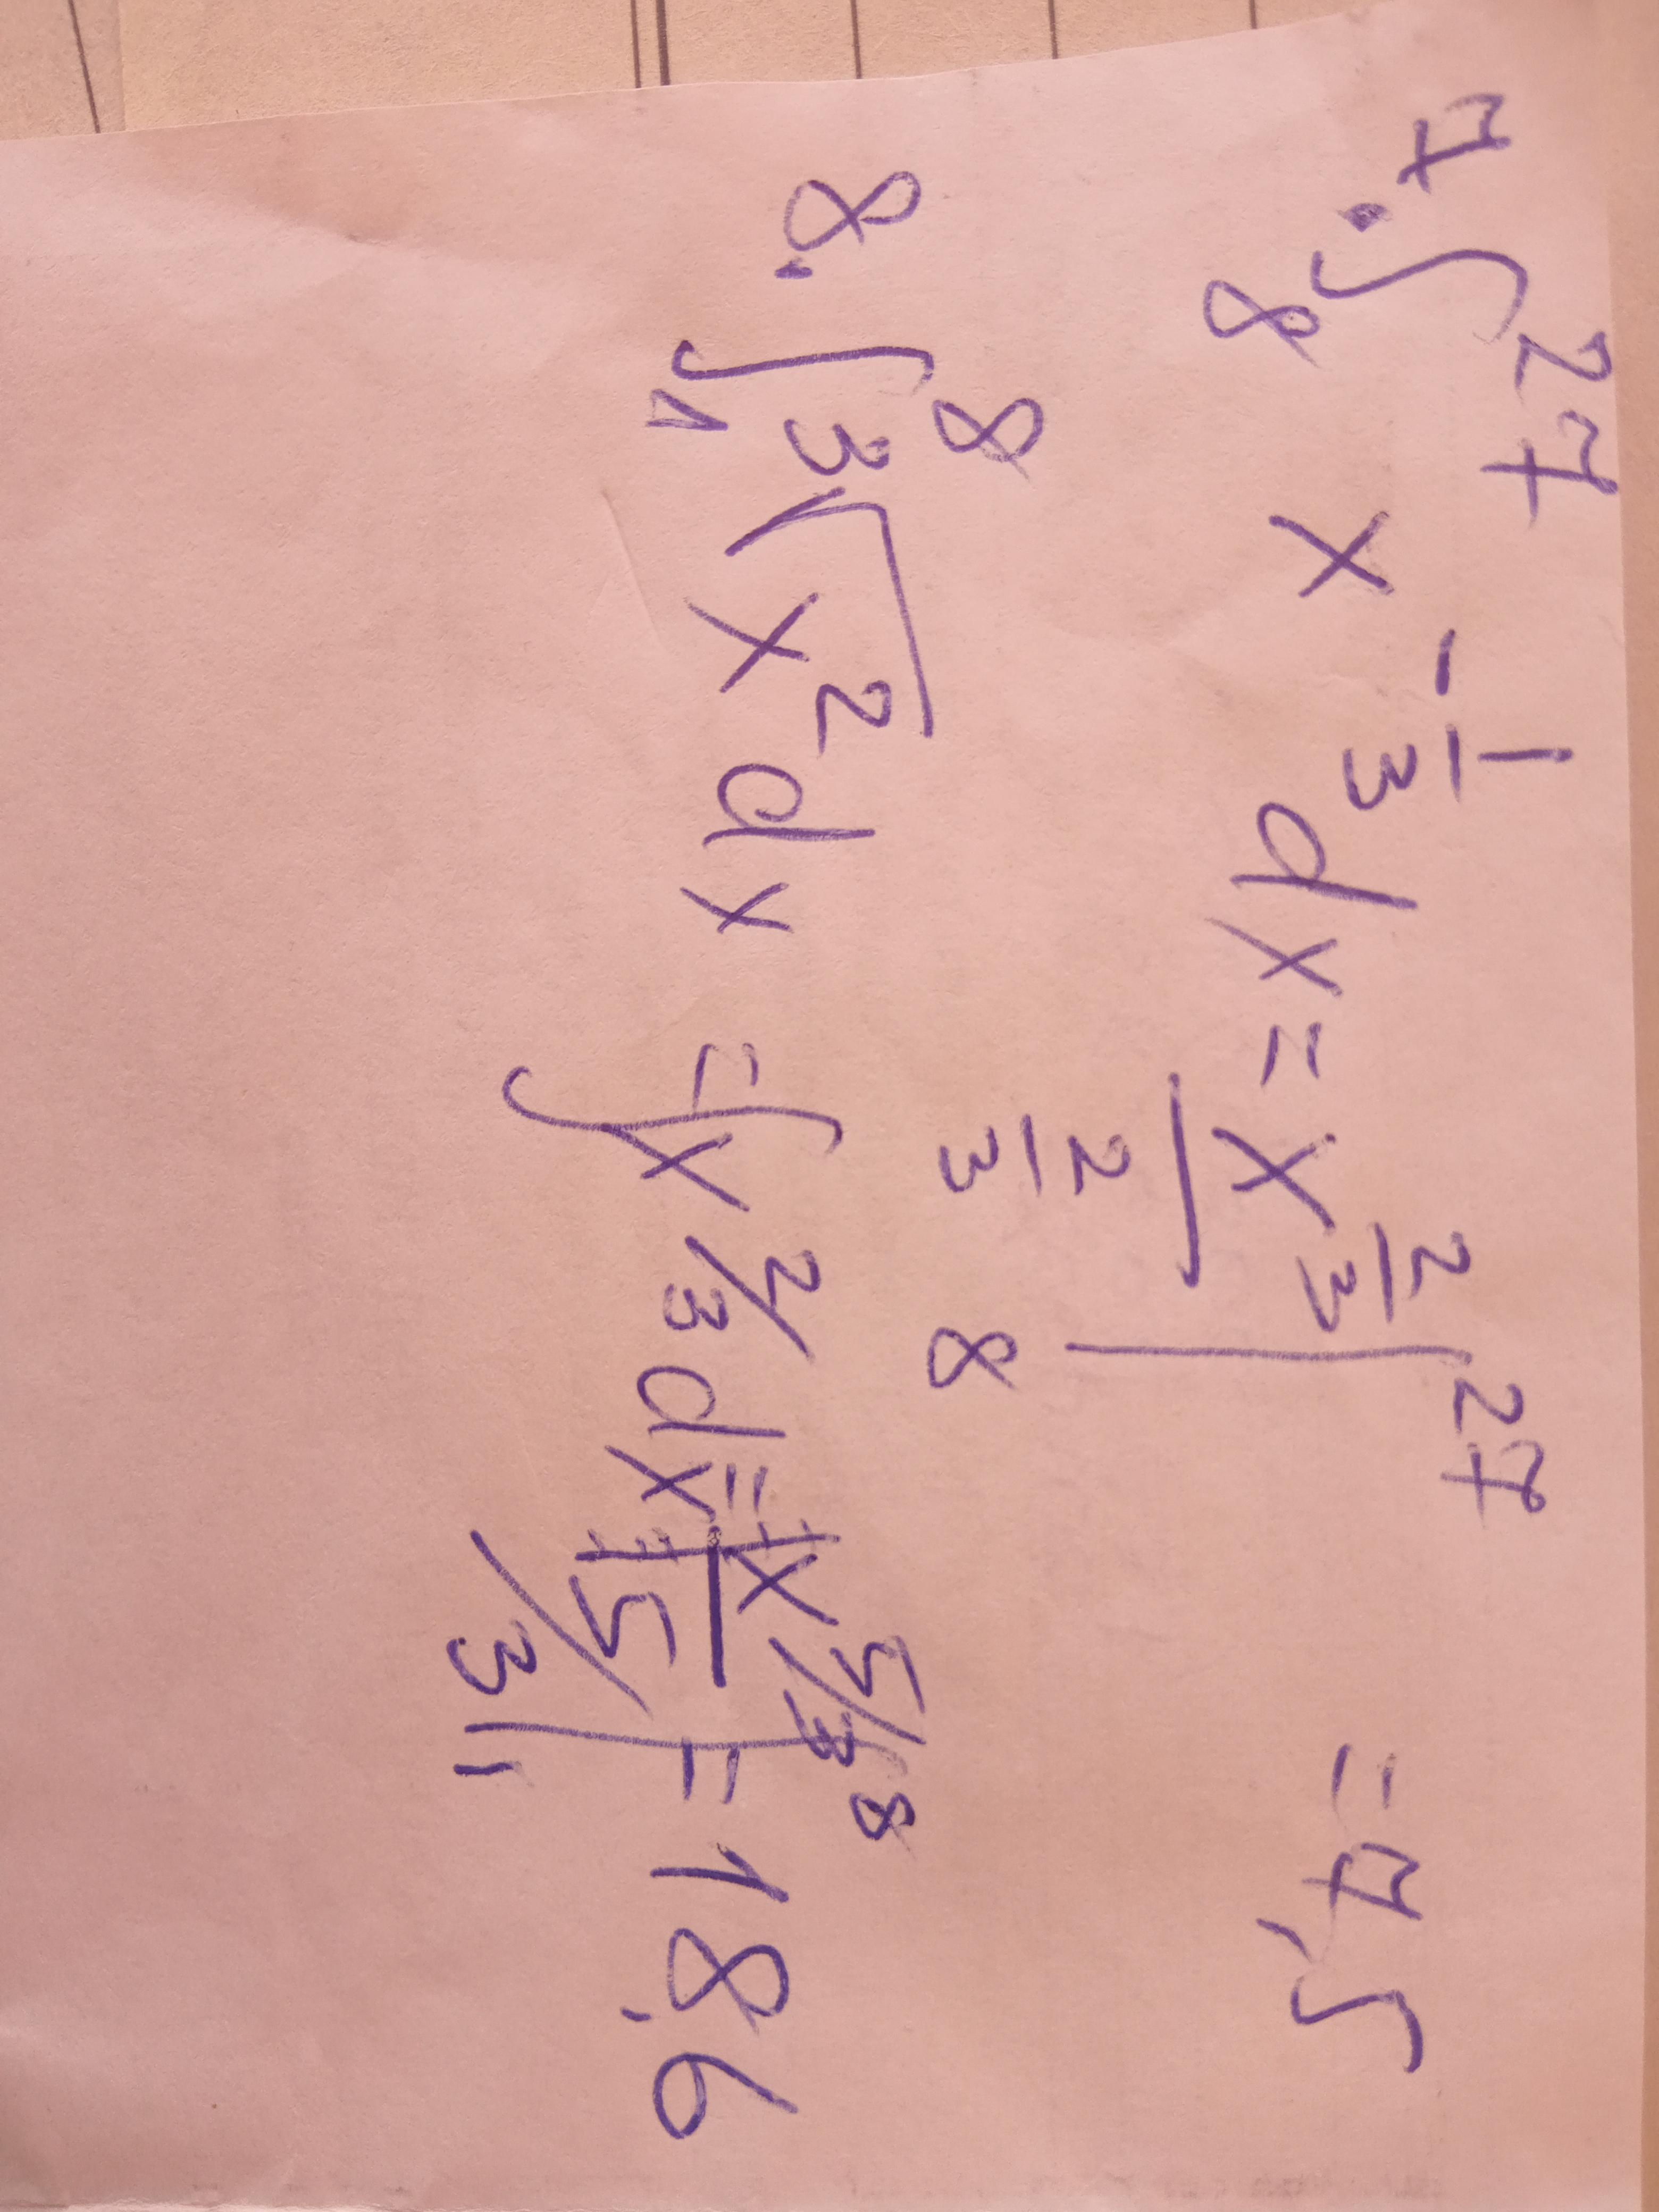 7. ∫₈²⁷ x^(-1/3) dx = x^(2/3) / (2/3) |₈²⁷ = 7,5
8. ∫₁⁸ ³√x² dx = ∫x^(2/3) dx = x^(5/3) / (5/3) |₁⁸ = 18,6